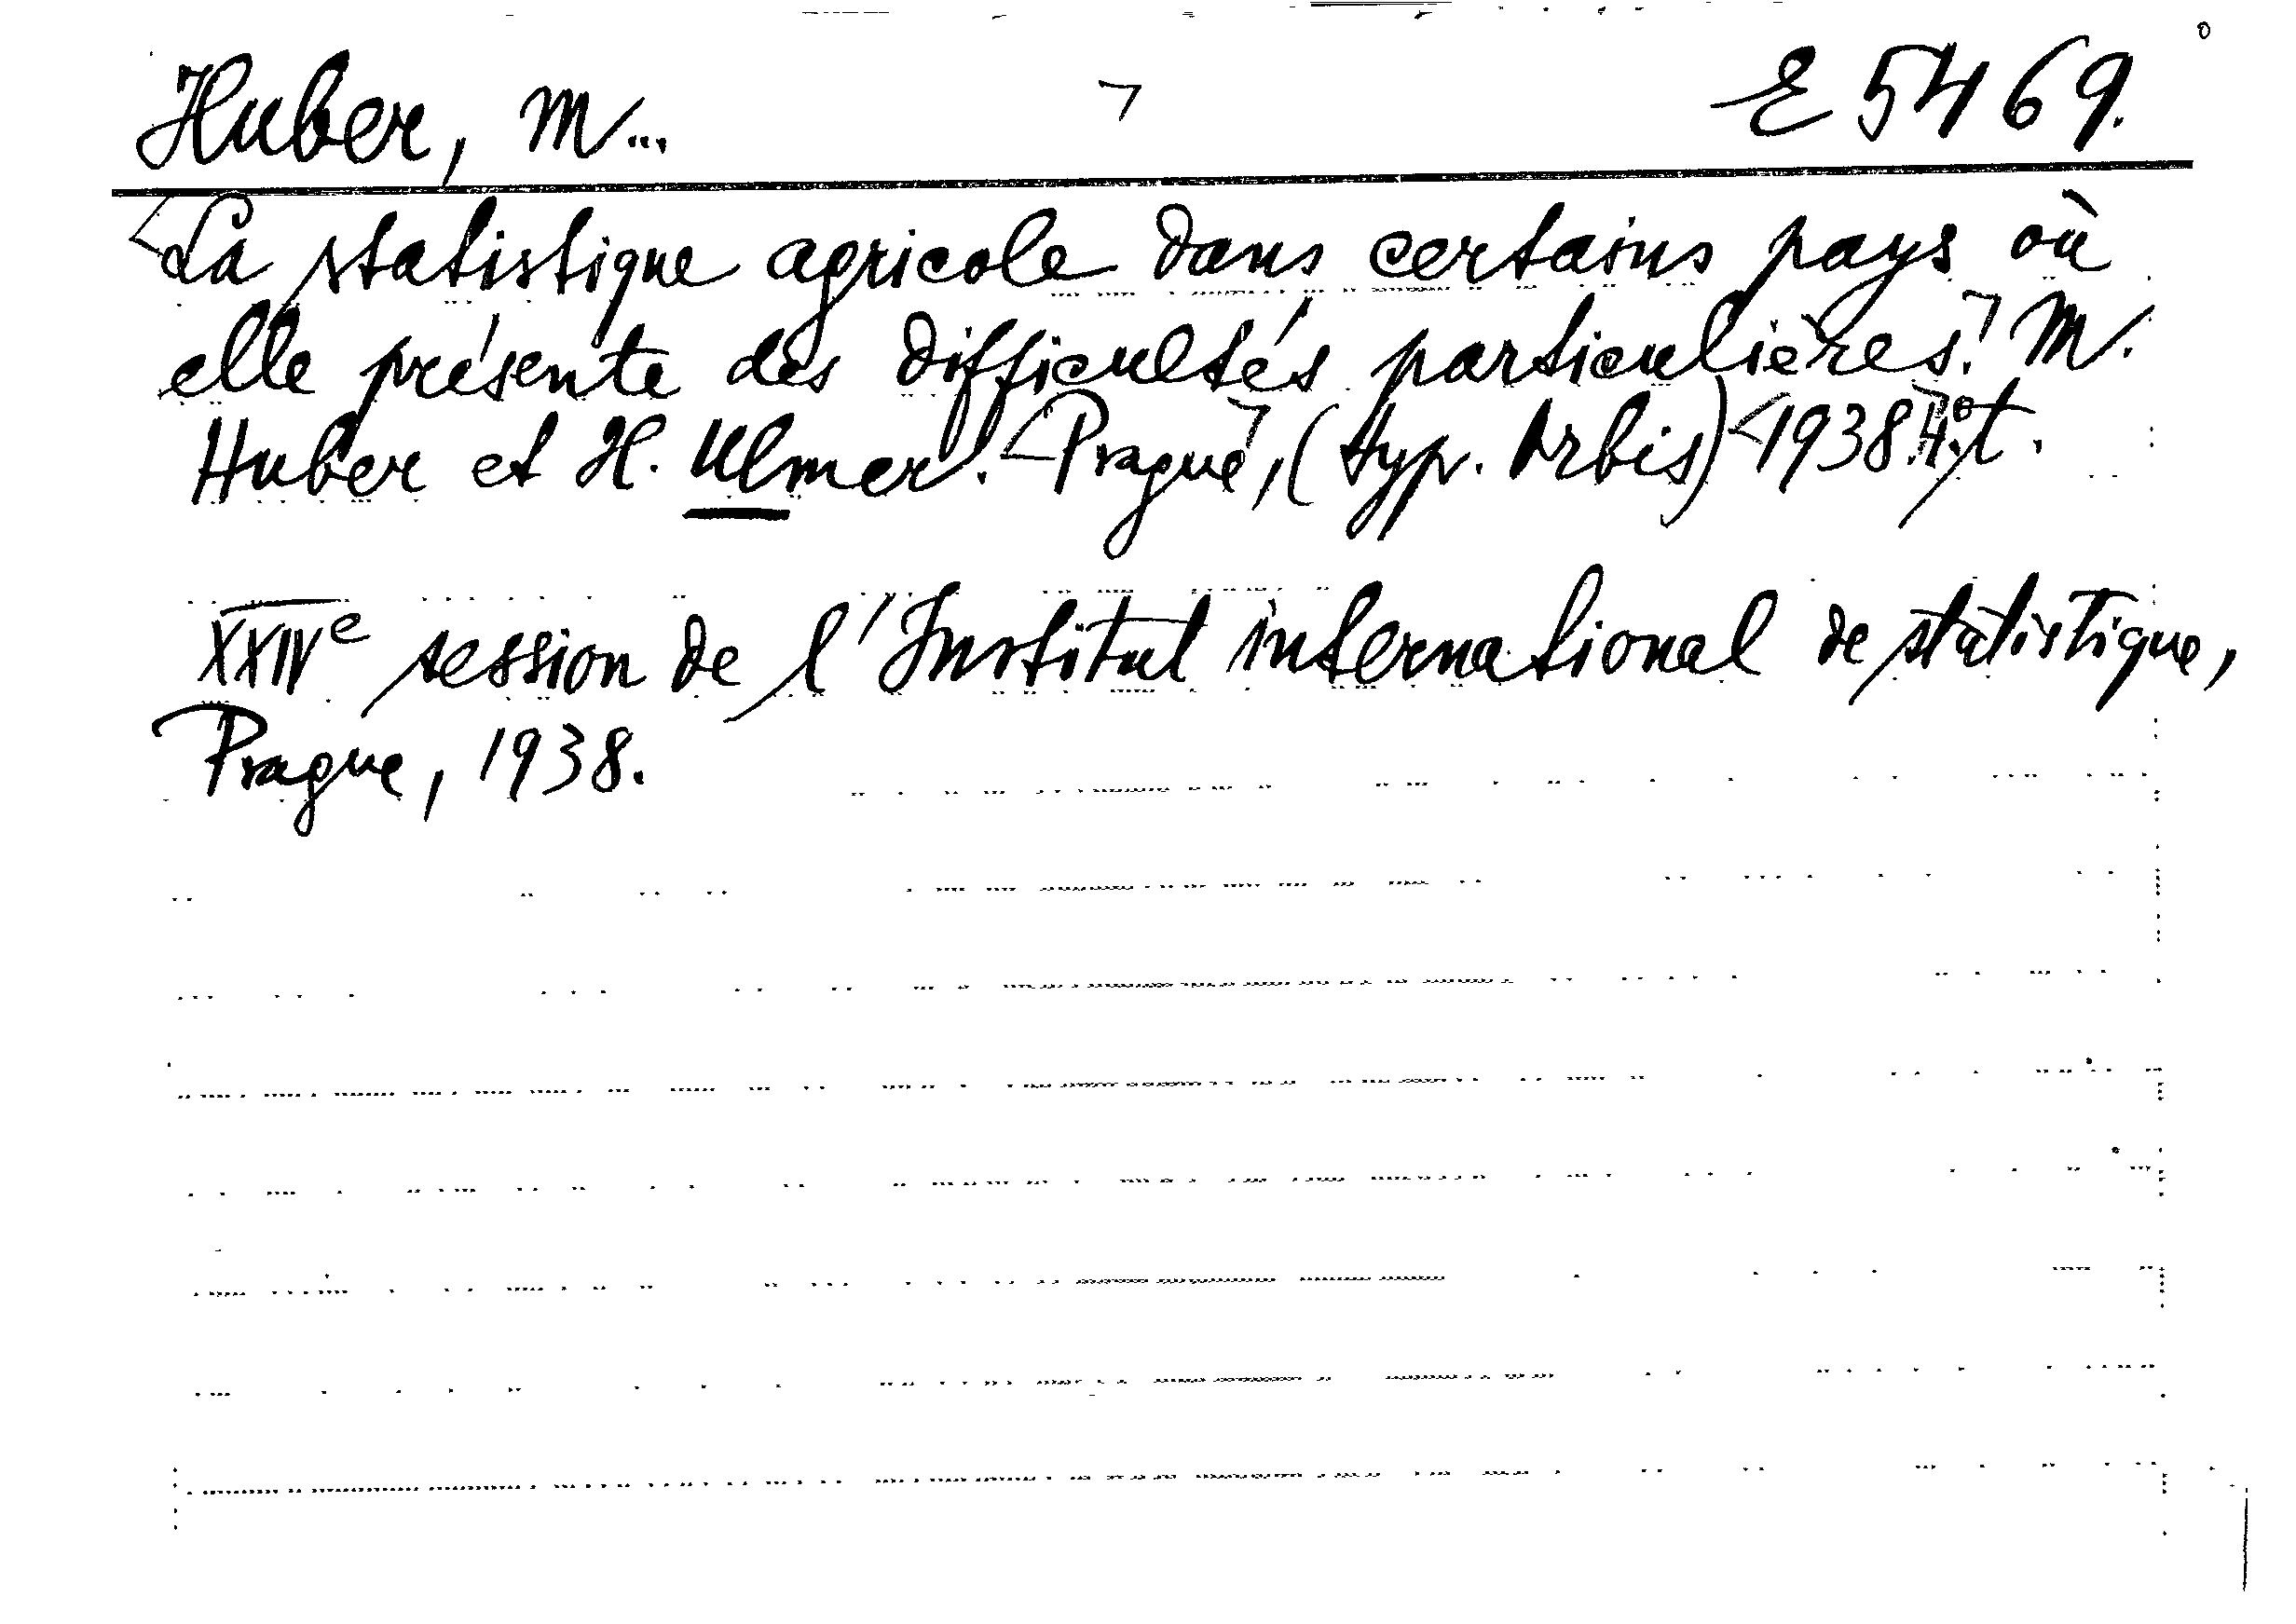 Huber, M... E 5469.
La statistique agricole dans certains pays où
elle présente des difficultés particulières. M.
Huber et H. Ulmer. Prague, (typ. Orbis) 1938. 4° t.
XXIVe session de l'Institut international de statistique,
Prague, 1938.